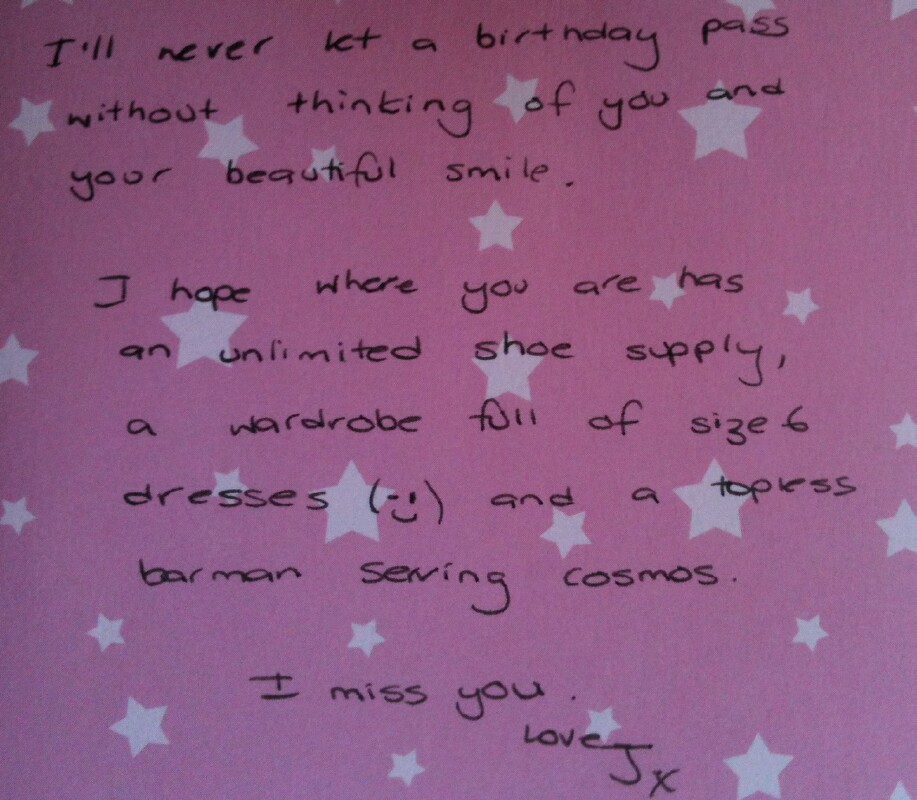 I'll never let a birthday pass
without thinking of you and
your beautiful smile.
I hope where you are has
an unlimited shoe supply,
a wardrobe full of size 6
dresses (-:) and a topless
barman serving cosmos.
I miss you.
Love J x